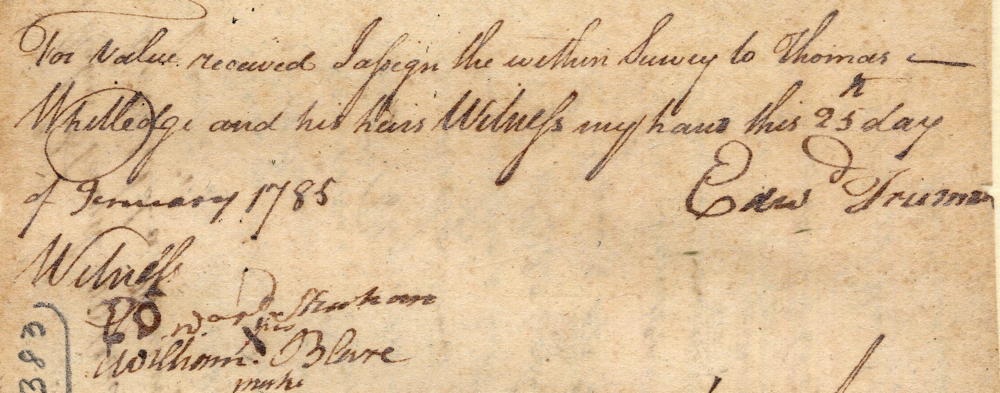 For Value received I assign the within Survey to Thomas
Whitledge and his heirs Witness my hand this 25th day
of Jenuary 1785
Edwd Trueman
Witness
Edward
his
William X Blare
mark
383